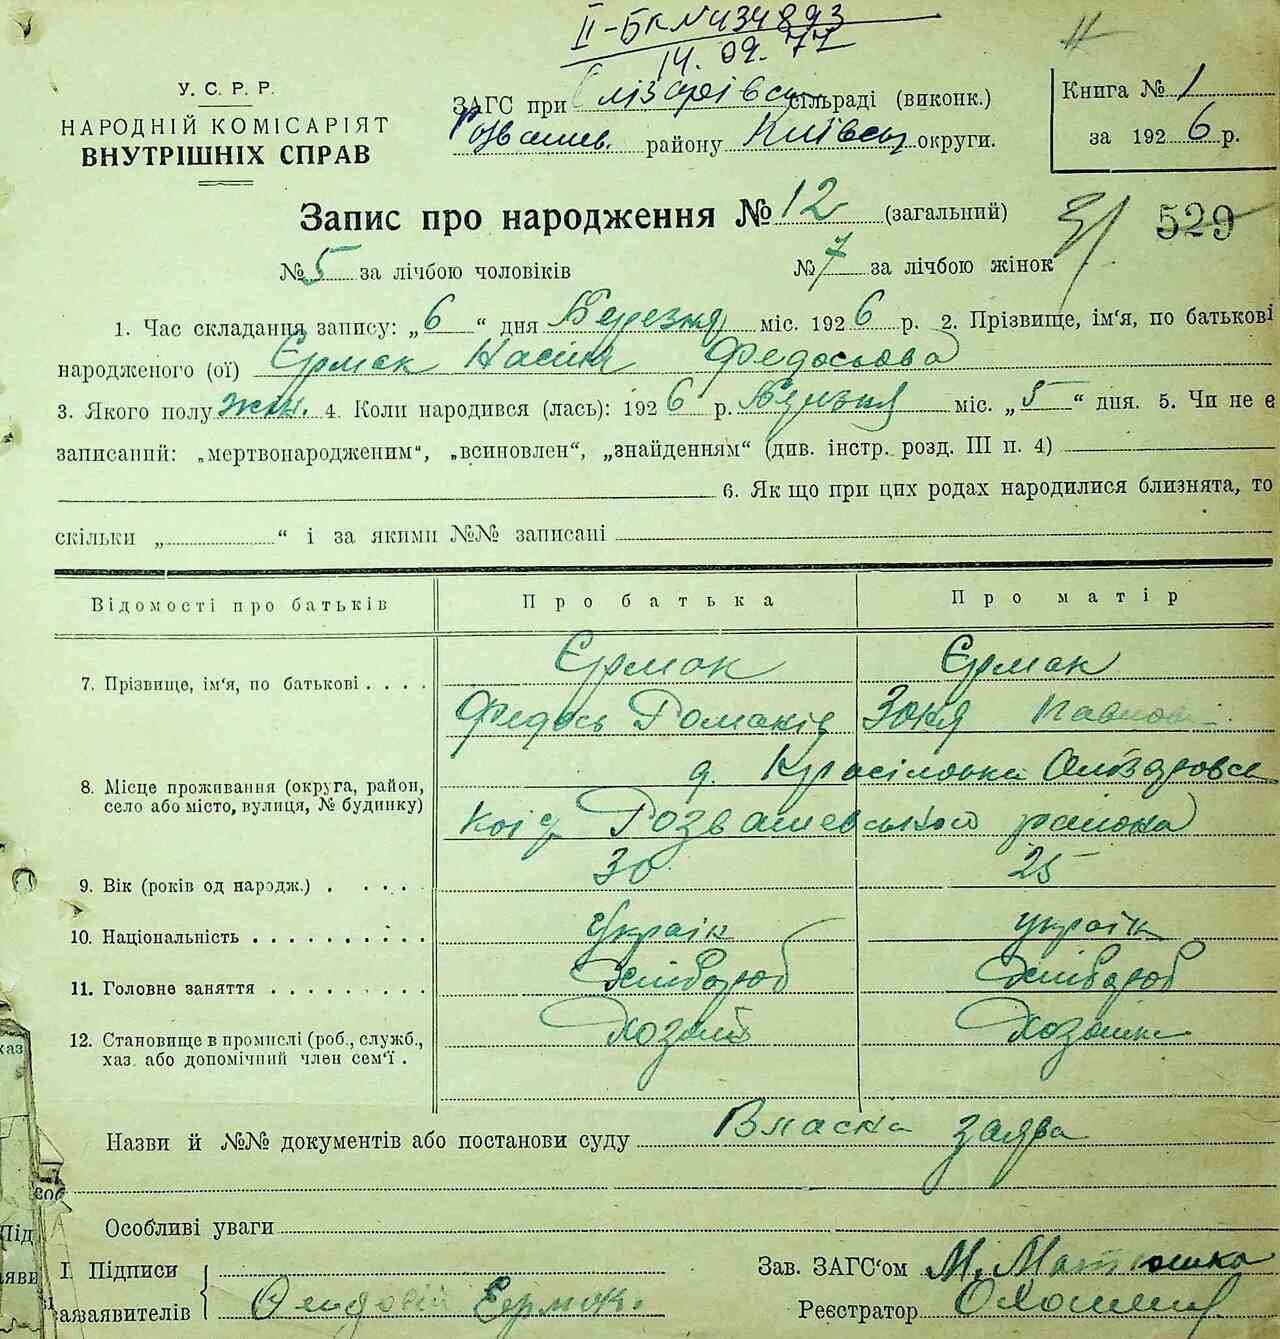 ІІ-БК №434893
14. 09. 77
У. С. Р. Р.
НАРОДНІЙ КОМІСАРІЯТ
ВНУТРІШНІХ СПРАВ
ЗАГС при Олізарівськ сільраді (виконк.)
Розважев. району Київськ округи.
Книга № 1
за 1926 р.
Запис про народження № 12 (загальний)
529
№ 5 за лічбою чоловіків № 7 за лічбою жінок
1. Час складання запису: „6“ дня Березня міс. 1926 р. 2. Прізвище, ім‘я, по батькові
народженого (ої) Єрмак Насття Федосьова
3. Якого полу жін. 4. Коли народився (лась): 1926 р. Березня міс. „5“ дня. 5. Чи не є
записаний: „мертвонародженим“, „всиновлен“, „знайденням“ (див. інстр. розд. III п. 4)
6. Як що при цих родах народилися близнята, то
скільки „ “ і за якими №№ записані
Відомості про батьків Про батька Про матір
7. Прізвище, ім‘я, по батькові . . . . Єрмак Єрмак
Федось Романів Зоня Павлов
8. Місце проживання (округа, район, село або місто, вулиця, № будинку) д. Красіловка Олізаровсь
кої Розважевського района
9. Вік (років од народж.) . . . . . 30 25
10. Національність . . . . . . . . . . Україн україн
11. Головне заняття . . . . . . . . . Хлібороб Хлібороб
12. Становище в промислі (роб., служб., хаз. або допомічний член сем‘ї . Хозяїн Хозяйка
Назви й №№ документів або постанови суду Власна заява
Особливі уваги
І. Підписи
заявителів Єрмак
Зав. ЗАГС‘ом М. Матюшко
Реєстратор